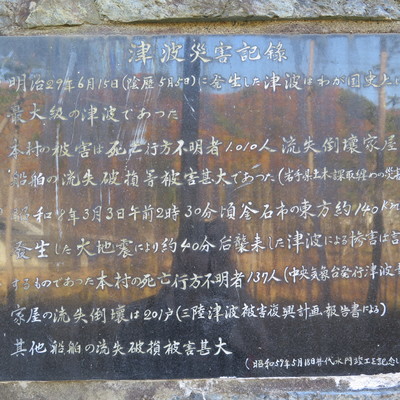 津波災害記録
明治29年6月15日(陰暦5月5日)に発生した津波はわが国史上に
最大級の津波であった
本村の被害は死亡行方不明者1.010人 流失倒壊家屋
船舶の流失破損等被害甚大であった(岩手県土木課取纏めの災害
昭和8年3月3日午前2時30分頃釜石市の東方約140
発生した大地震により約40分后襲来した津波による惨害は言
するものであった本村の死亡行方不明者137人(中央気象台発行津波
家屋の流失倒壊は201戸(三陸津波被害復興計画報告書による)
其他船舶の流失破損被害甚大
(昭和59年5月18日普代水門竣工を記念し